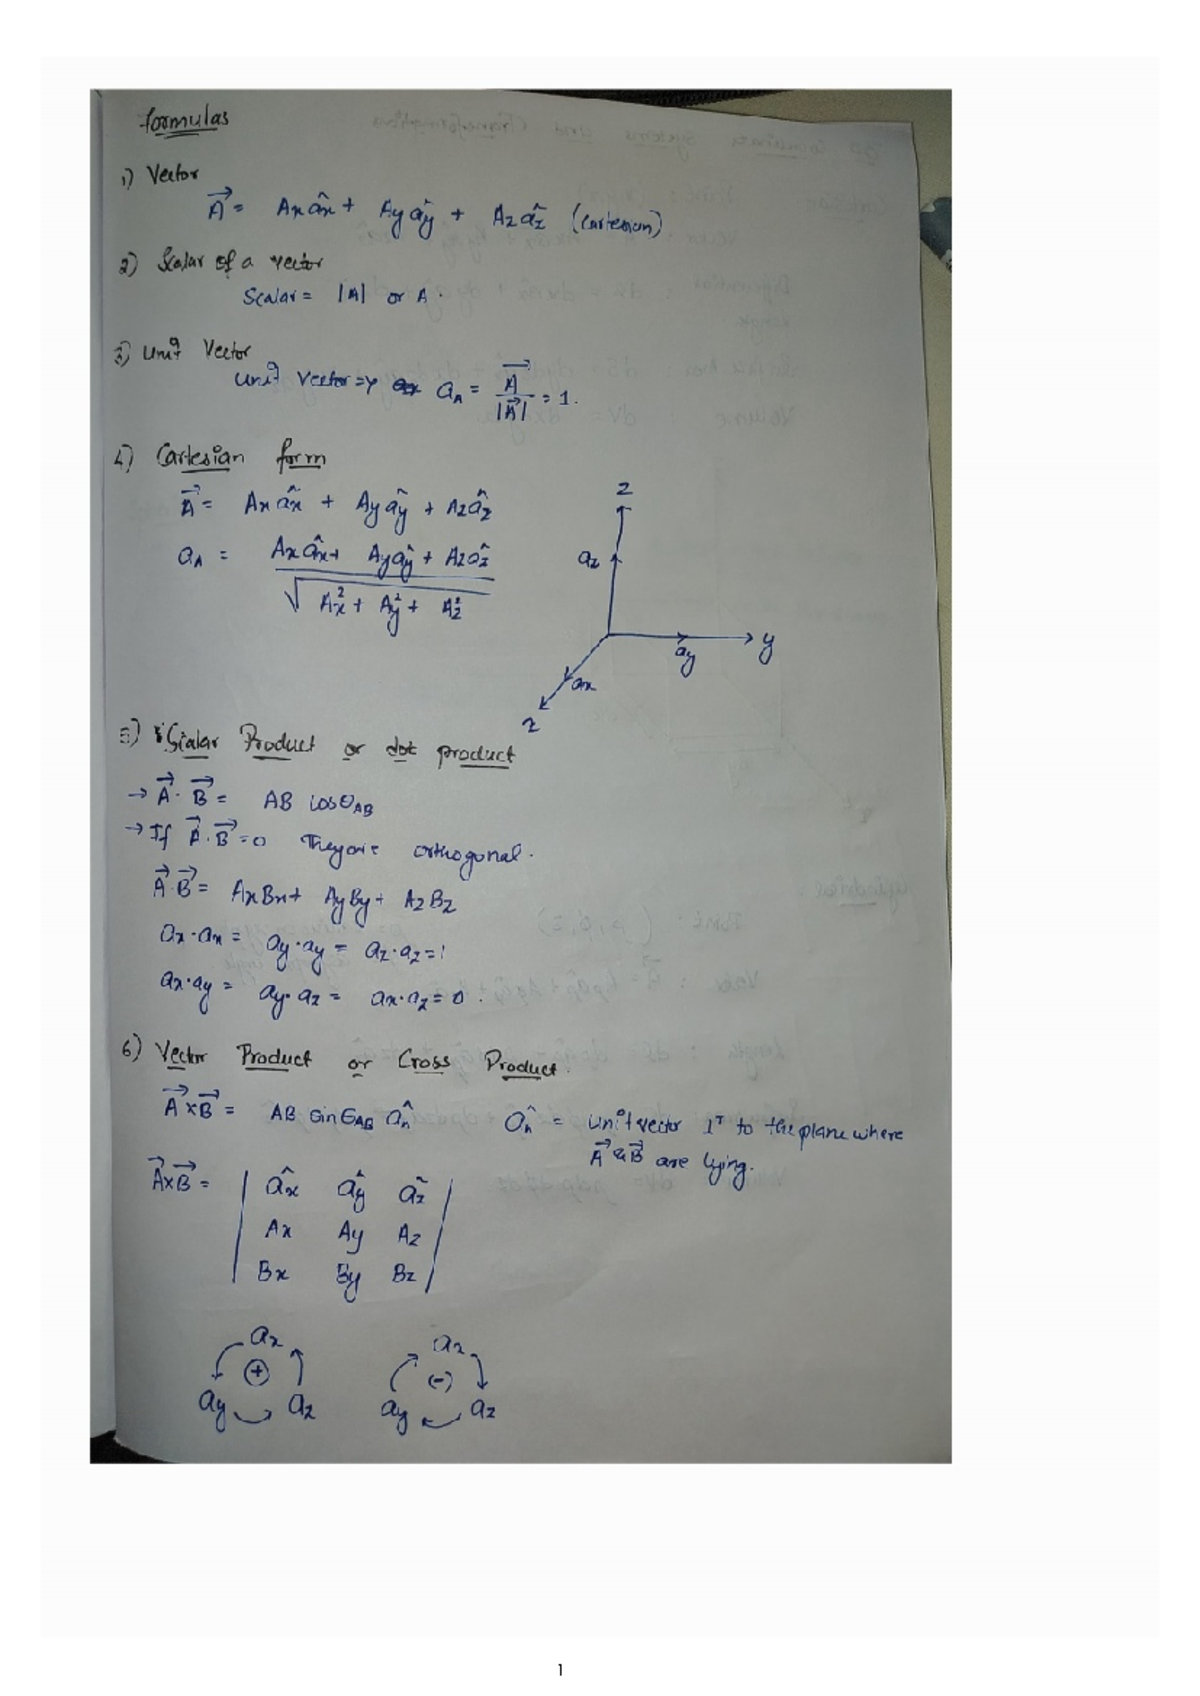 Formulas
1) Vector
A⃗ = Ax âx + Ay ây + Az âz (Cartesian)
2) Scalar of a vector
Scalar = |A| or A.
3) Unit Vector
Unit Vector => aA = A⃗ / |A⃗| = 1.
4) Cartesian form
A⃗ = Ax âx + Ay ây + Az âz
aA = Ax âx + Ay ây + Az âz / √ Ax² + Ay² + Az²
z
az
y
ay
ax
x
5) Scalar Product or dot product
→ A⃗ · B⃗ = AB cosθAB
→ If A⃗ · B⃗ = 0 They are orthogonal.
A⃗ · B⃗ = AxBx + AyBy + AzBz
ax · ax = ay · ay = az · az = 1
ax · ay = ay · az = ax · az = 0.
6) Vector Product or Cross Product.
A⃗ × B⃗ = AB sinθAB ân ân = unit vector ⊥r to the plane where
A⃗ & B⃗ are lying.
A⃗ × B⃗ = | âx ây âz |
Ax Ay Az
Bx By Bz
ax ax
(+) (-)
ay az ay az
1